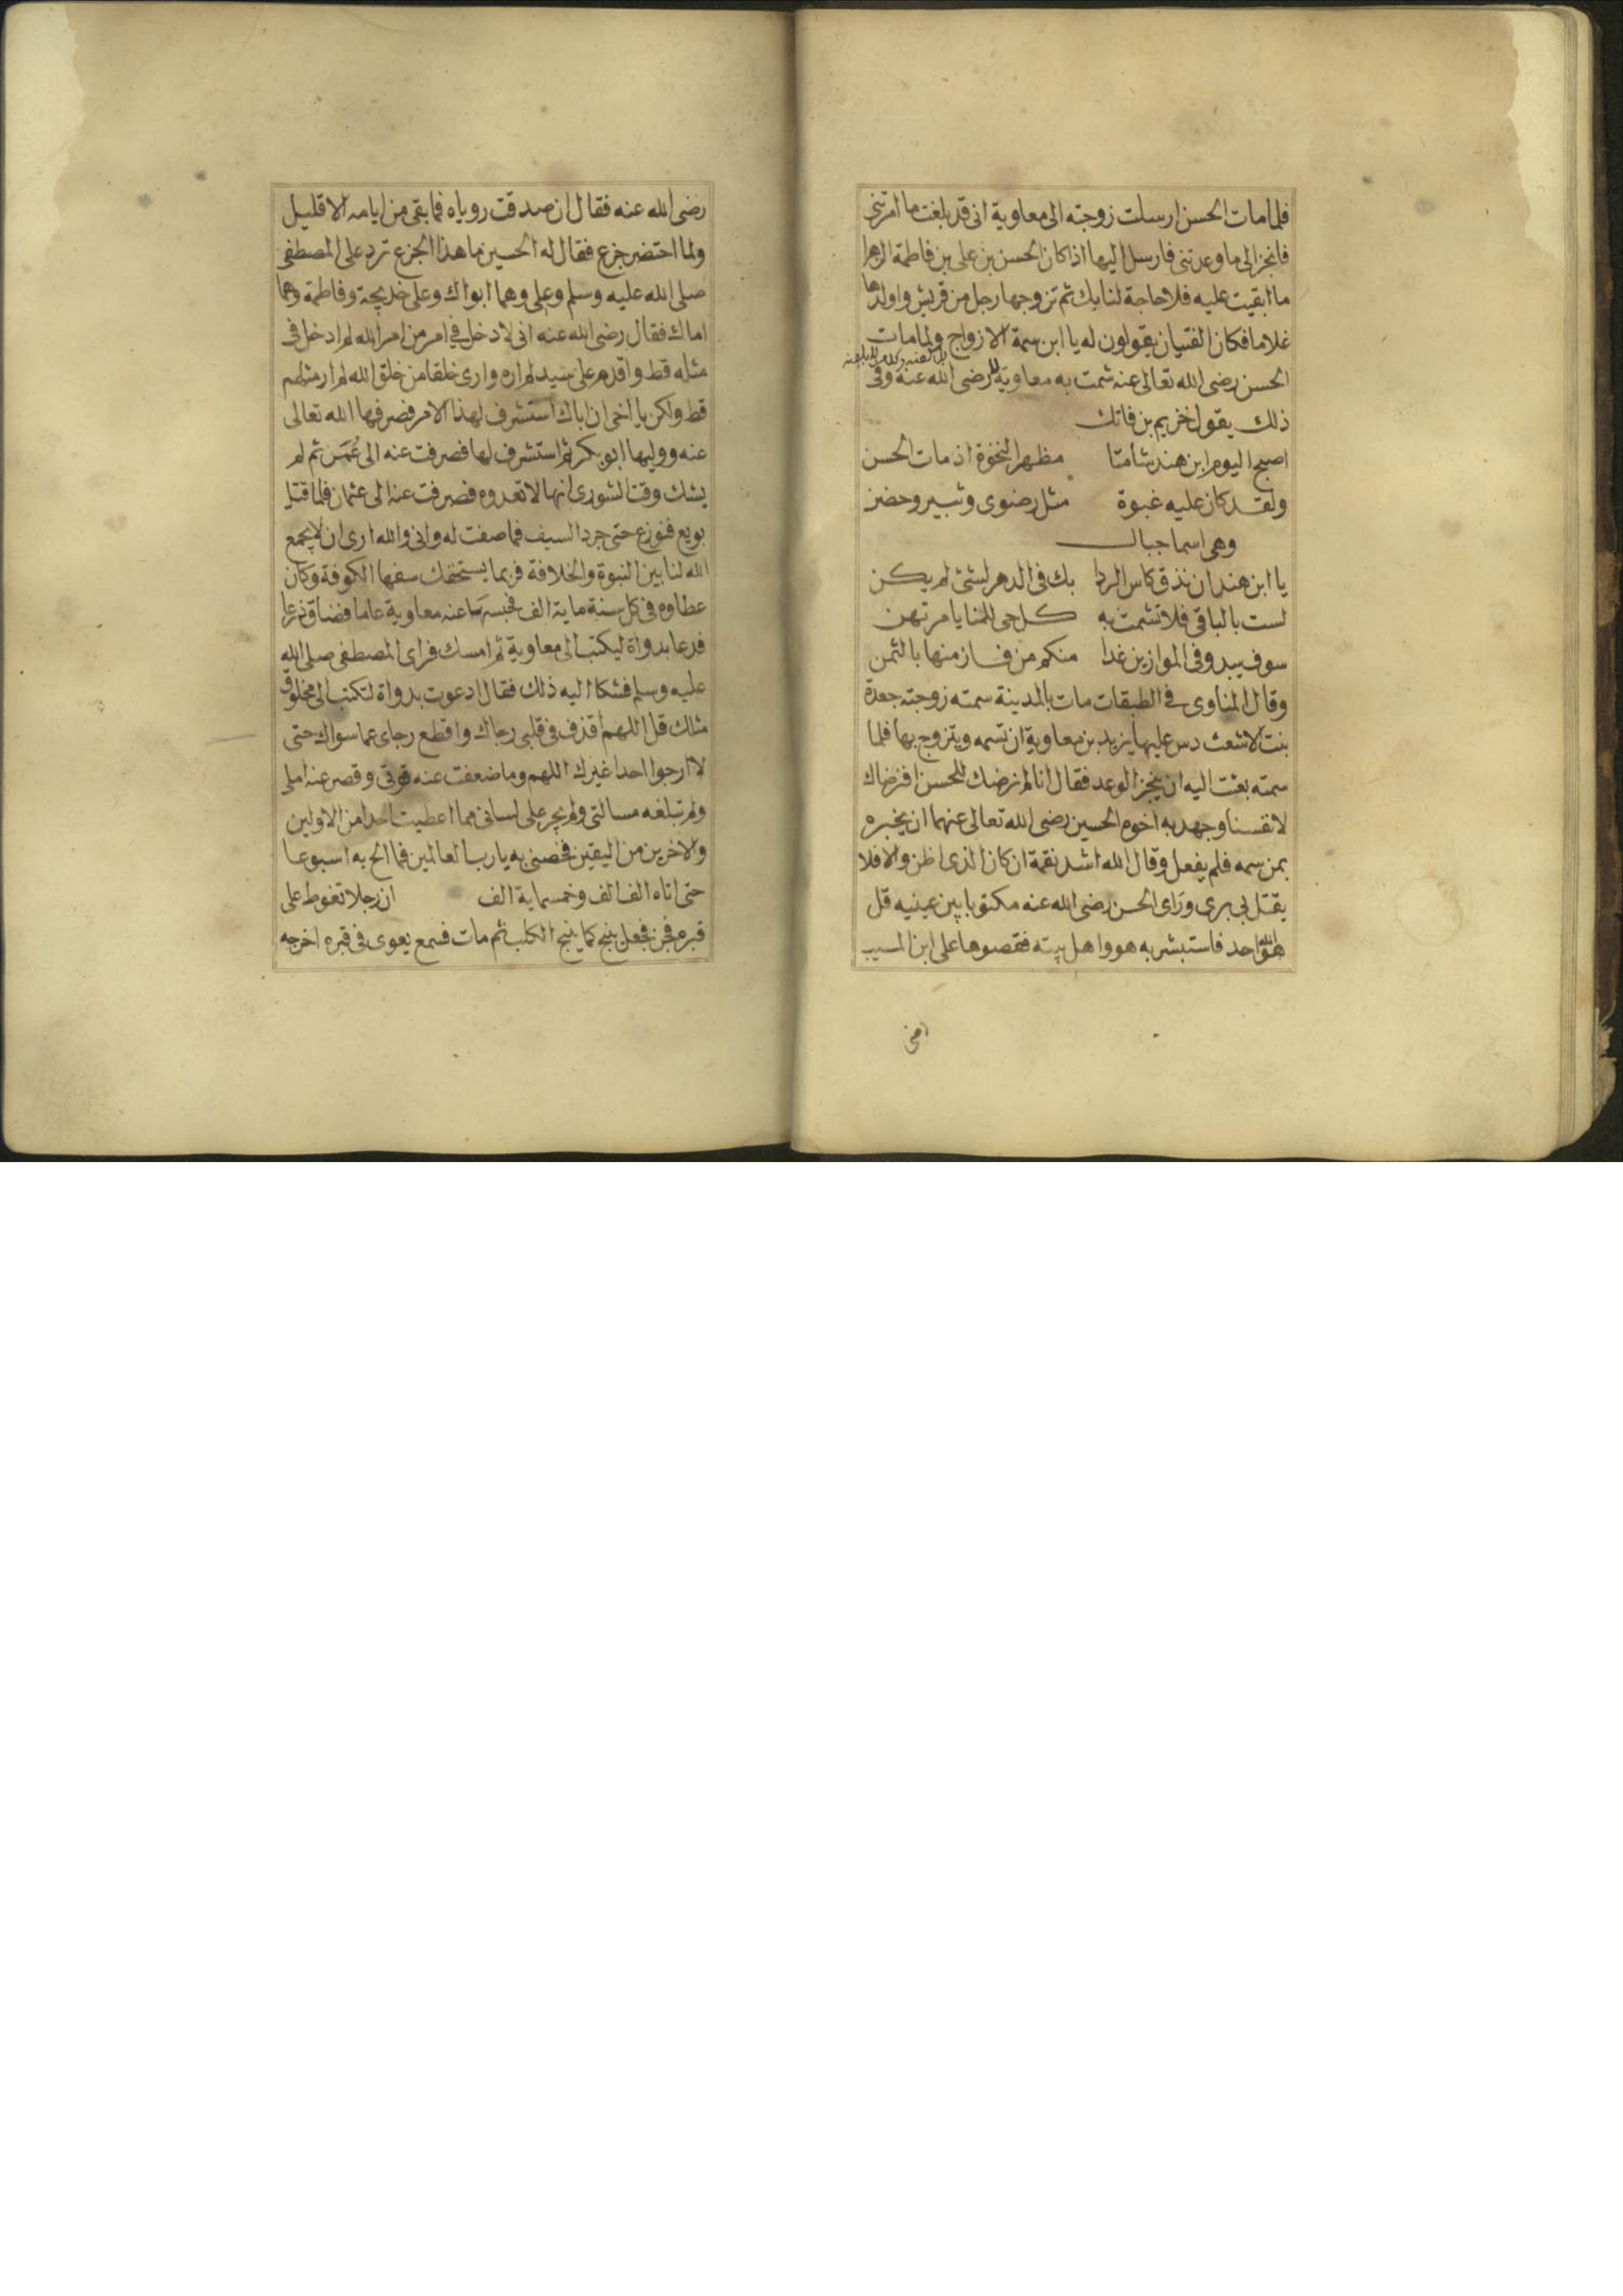 فلما مات الحسن ارسلت زوجته الى معاوية انى قد بلغت ما امرتنى
فانجز الى ما وعدتنى فارسل اليها اذا كان الحسن بن على بن فاطمة الزهرا
ما ابقيت عليه فلا حاجة لنا بك ثم تزوجها رجل من قريش واولدها
غلاما فكان الفتيان يقولون له يا ابن سمة الازواج ولما مات
الحسن رضى الله تعالى عنه شمت به معاوية رضى الله عنه وفى
ذلك يقول خزيم بن فاتك
اصبح اليوم ابن هند شامتا مظهر النخوة اذ مات الحسن
ولقد كان عليه غبوة مثل رضوى وثبير وحضن
وهى اسما جبال
يا ابن هند ان نذق كاس الردا بك فى الدهر لشئ لم يكن
لست بالباقى فلا تشمت به كل حى للمنايا مرتهن
سوف يبدو فى الموازين غدا منكم من فاز منها بالثمن
وقال المناوى فى الطبقات مات بالمدينة سمته زوجته جعدة
بنت الاشعث دس عليها يزيد بن معاوية ان تسمه ويتزوج بها فلما
سمته بعثت اليه ان ينجز الوعد فقال انا لم نرضك للحسن افنرضاك
لانفسنا وجهد به اخوه الحسين رضى الله تعالى عنهما ان يخبره
بمن سمه فلم يفعل وقال الله اشد نقمة ان كان الذى اظن والا فلا
يقتل بى برى وراى الحسن رضى الله عنه مكتوبا بين عينيه قل
هو الله احد فاستبشر به هو واهل بيته فقصوها على ابن المسيب
رضى الله عنه فقال ان صدقت روياه فما بقى من ايامه الا قليل
ولما احتضر جزع فقال له الحسين ما هذا الجزع ترد على المصطفى
صلى الله عليه وسلم وعلى وهما ابواك وعلى خديجة وفاطمة وهما
اماك فقال رضى الله عنه انى لادخل فى امر من امر الله لم ادخل فى
مثله قط واقدم على سيد لم اره وارى خلقا من خلق الله لم ار مثلهم
قط ولكن يا اخى ان اباك استشرف لهذا الامر فصرفها الله تعالى
عنه ووليها ابو بكر ثم استشرف لها فصرفت عنه الى عُمَر ثم لم
يشك وقت الشورى انها لا تعدوه فصرفت عنه الى عثمان فلما قتل
بويع فنوزع حتى جرد السيف فما صفت له وانى والله ارى ان لا يجمع
الله لنا بين النبوة والخلافة فربما يستخفك سفها الكوفة وكان
عطاوه فى كل سنة ماية الف فحبسها عنه معاوية عاما فضاق ذرعا
فدعا بدواة ليكتب الى معاوية ثم امسك فراى المصطفى صلى الله
عليه وسلم فشكا اليه ذلك فقال ادعوت بدواة لتكتب الى مخلوق
مثلك قل اللهم اقذف فى قلبى رجاك واقطع رجاى عما سواك حتى
لا ارجوا احدا غيرك اللهم وما ضعفت عنه قوتى وقصر عنه املى
ولم تبلغه مسالتى ولم يجر على لسانى مما اعطيت احدا من الاولين
والاخرين من اليقين فخصنى به يا رب العالمين فما الح به اسبوعا
حتى اتاه الف الف وخمسماية الف ان رجلا تغوط على
قبره فجن فجعل ينبح كما ينبح الكلب ثم مات فسمع يعوى فى قبره اخرجه